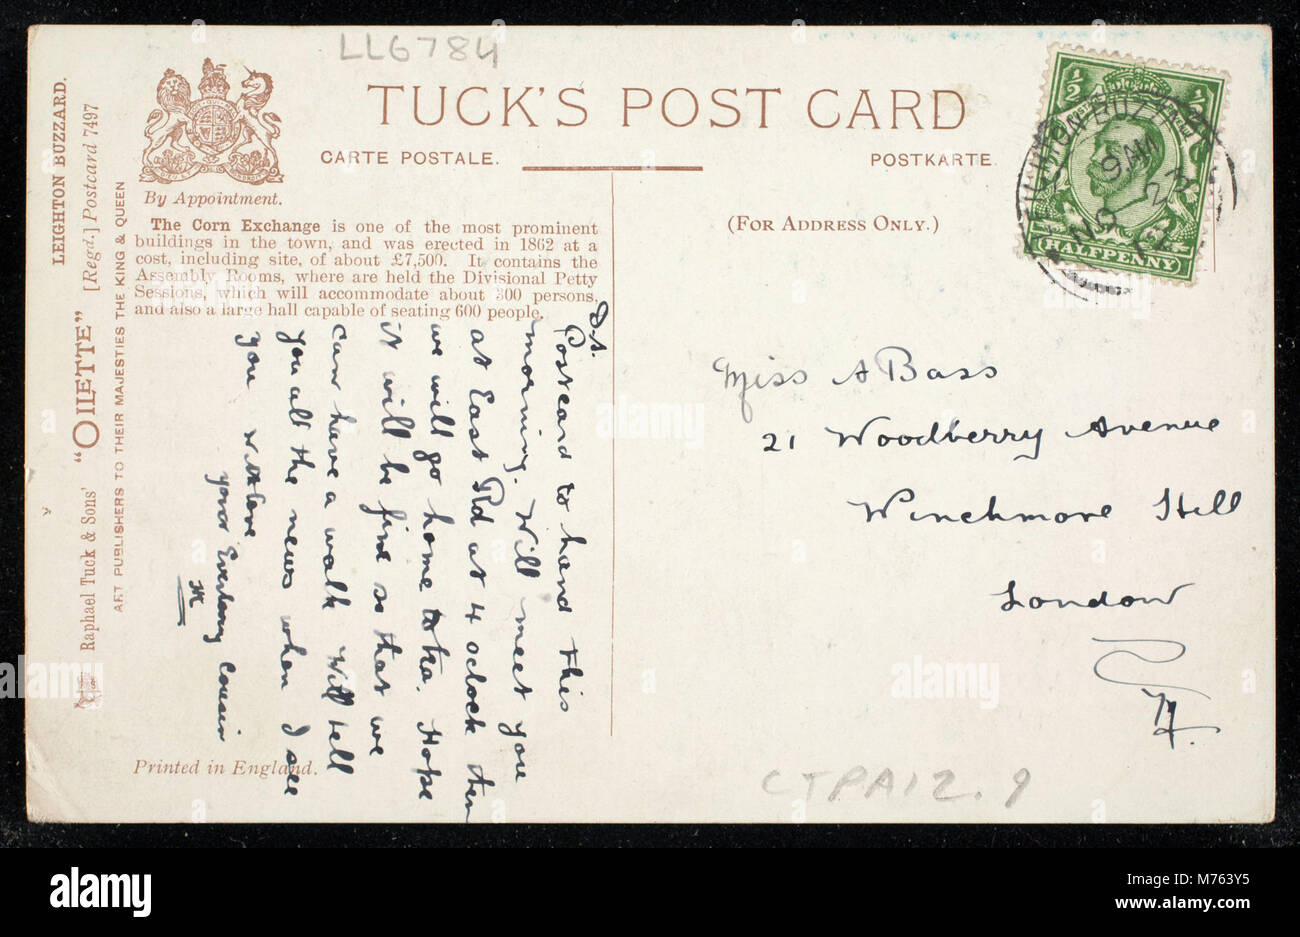 LL6784
TUCK'S POST CARD
CARTE POSTALE.
POSTKARTE.
(FOR ADDRESS ONLY.)
By Appointment.
LEIGHTON BUZZARD.
Raphael Tuck & Sons' "OILETTE" [Regd.] Postcard 7497
ART PUBLISHERS TO THEIR MAJESTIES THE KING & QUEEN
The Corn Exchange is one of the most prominent
buildings in the town, and was erected in 1862 at a
cost, including site, of about £7,500. It contains the
Assembly Rooms, where are held the Divisional Petty
Sessions, which will accommodate about 300 persons,
and also a large hall capable of seating 600 people.
D.A.
Postcard to hand this
morning. Will meet you
at East Rd at 4 oclock then
we will go home to tea. Hope
it will be fine so that we
can have a walk Will tell
you all the news when I see
you
your Everloving Cousin
M
Printed in England.
½ ½
HALFPENNY
LEIGHTON BUZZARD
9 AM
NO 2
12
Miss A Bass
21 Woodberry Avenue
Winchmore Hill
London
N.
CTPA12.9
alamy
Image ID: M763Y5
www.alamy.com